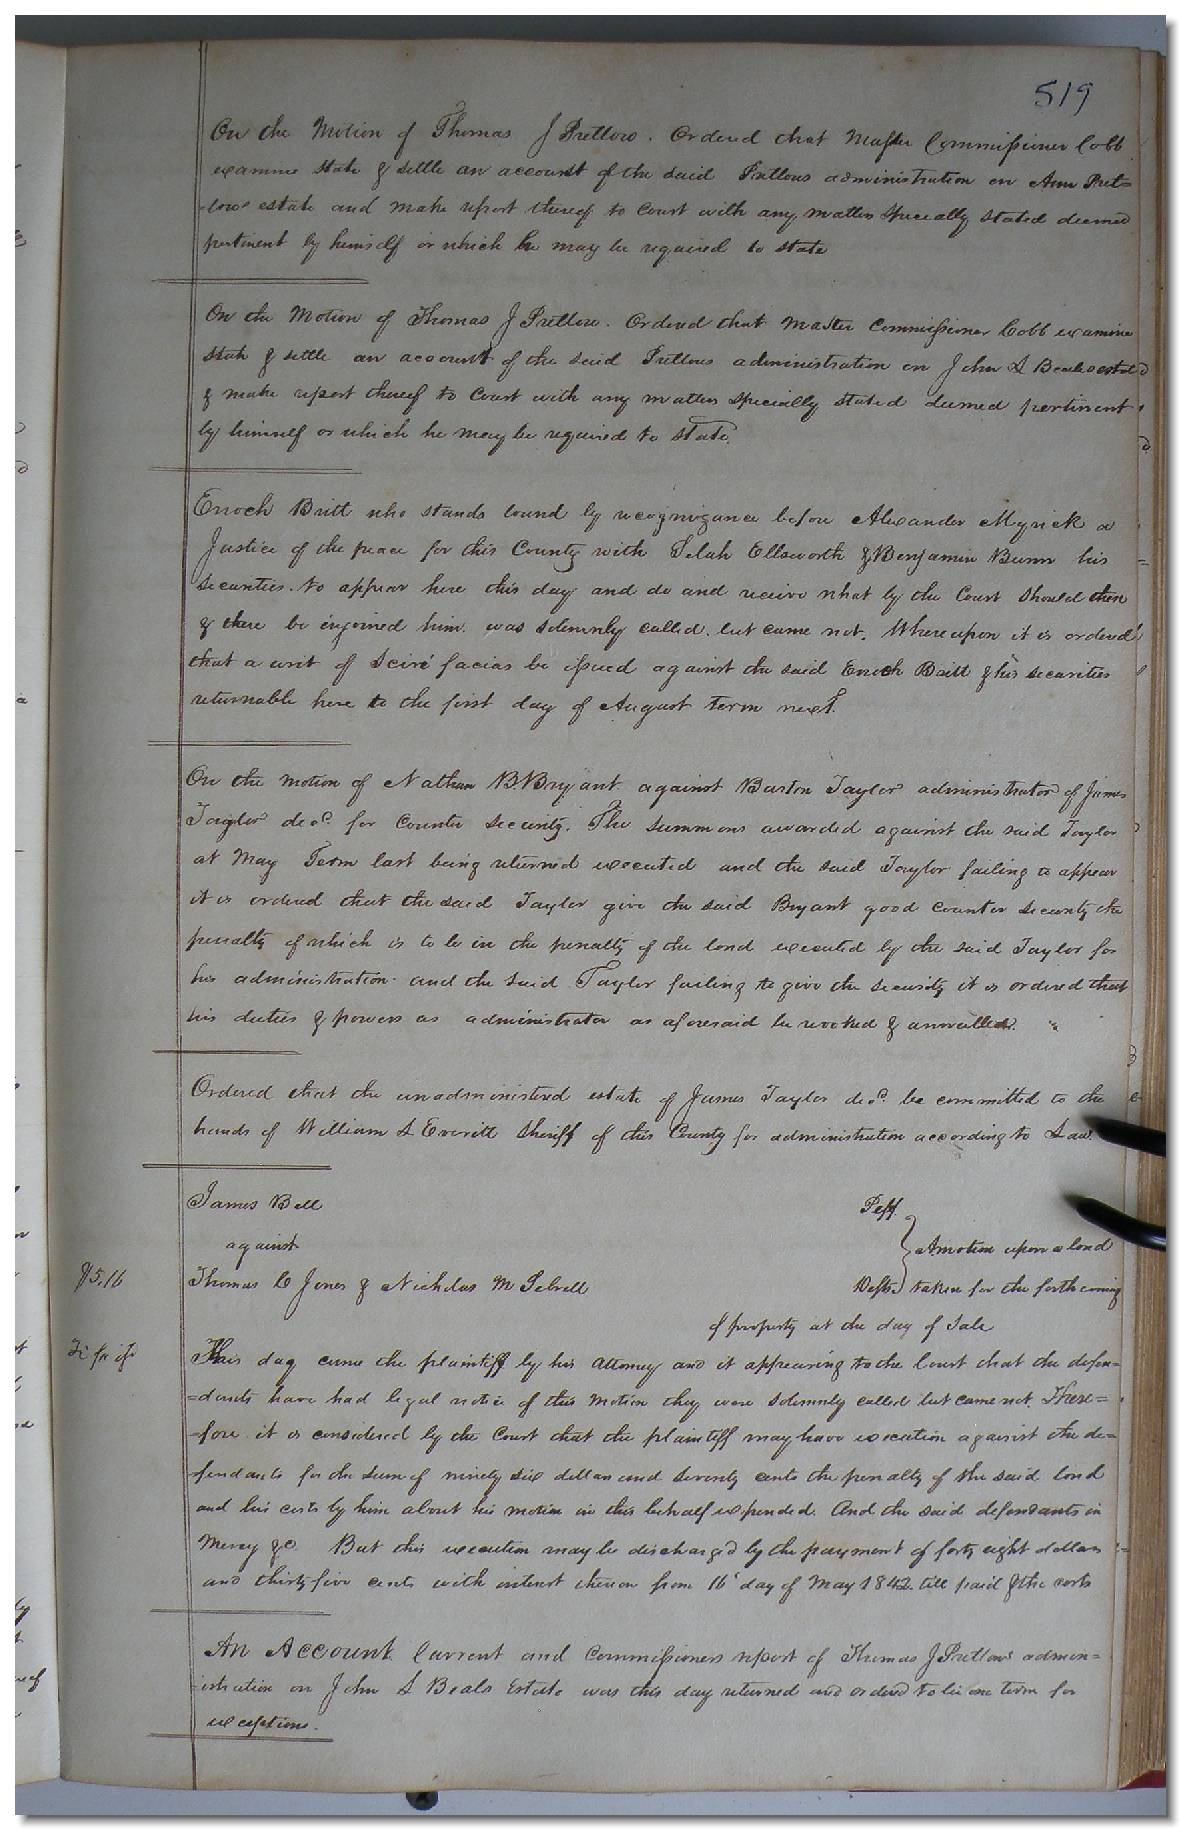 519
On the Motion of Thomas J Pretlow. Ordered that Master Commissioner Cobb
examine state & settle an account of the said Pretlows administration on Ann Pret=
-lows estate and make report thereof to Court with any matters specially stated deemed
pertinent by himself or which he may be required to state
On the Motion of Thomas J Pretlow. Ordered that Master Commissioner Cobb examine
state & settle an account of the said Pretlows administration on John S Beales estate
& make report thereof to Court with any matters specially stated deemed pertinent
by himself or which he may be required to state.
Enoch Britt who stands bound by recognizance before Alexander Myrick a
Justice of the peace for this County with Selah Ellsworth & Benjamin Bunn his
securities. to appear here this day and do and receive what by the Court should then
& there be enjoined him. was solemnly called. but came not. Whereupon it is ordered
that a writ of Scire facias be issued against the said Enoch Britt & his securities
returnable here to the first day of August term next.
On the motion of Nathan B. Bryant against Barton Taylor administrator of James
Taylor decd. for Counter security. The summons awarded against the said Taylor
at May Term last being returned executed and the said Taylor failing to appear
it is ordered that the said Taylor give the said Bryant good Counter security the
penalty of which is to be in the penalty of the bond executed by the said Taylor for
his administration and the said Taylor failing to give the security it is ordered that
his duties & powers as administrator as aforesaid be revoked & annulled.
Ordered that the unadministered estate of James Taylor decd. be committed to the
hands of William S Everitt Sheriff of this County for administration according to Law.
James Bell Plff.
against } A motion upon a bond
$5.16 Thomas C Jones & Nicholas M Sebrell Defts } taken for the forthcoming
of property at the day of Sale
Fi fa
This day came the plaintiff by his Attorney and it appearing to the Court that the defen=
=dants have had legal notice of this Motion they were solemnly called but came not. There=
-fore it is considered by the Court that the plaintiff may have execution against the de=
-fendants for the sum of ninety six dollars and seventy cents the penalty of the said bond
and his costs by him about his motion in this behalf expended. And the said defendants in
Mercy &c. But this execution may be discharged by the payment of forty eight dollars
and thirty five cents with interest thereon from 16 day of May 1842. till paid & the costs
An Account Current and Commissioners report of Thomas J Pretlows admin=
-istration on John S Beals Estate was this day returned and ordered to lie one term for
exceptions.